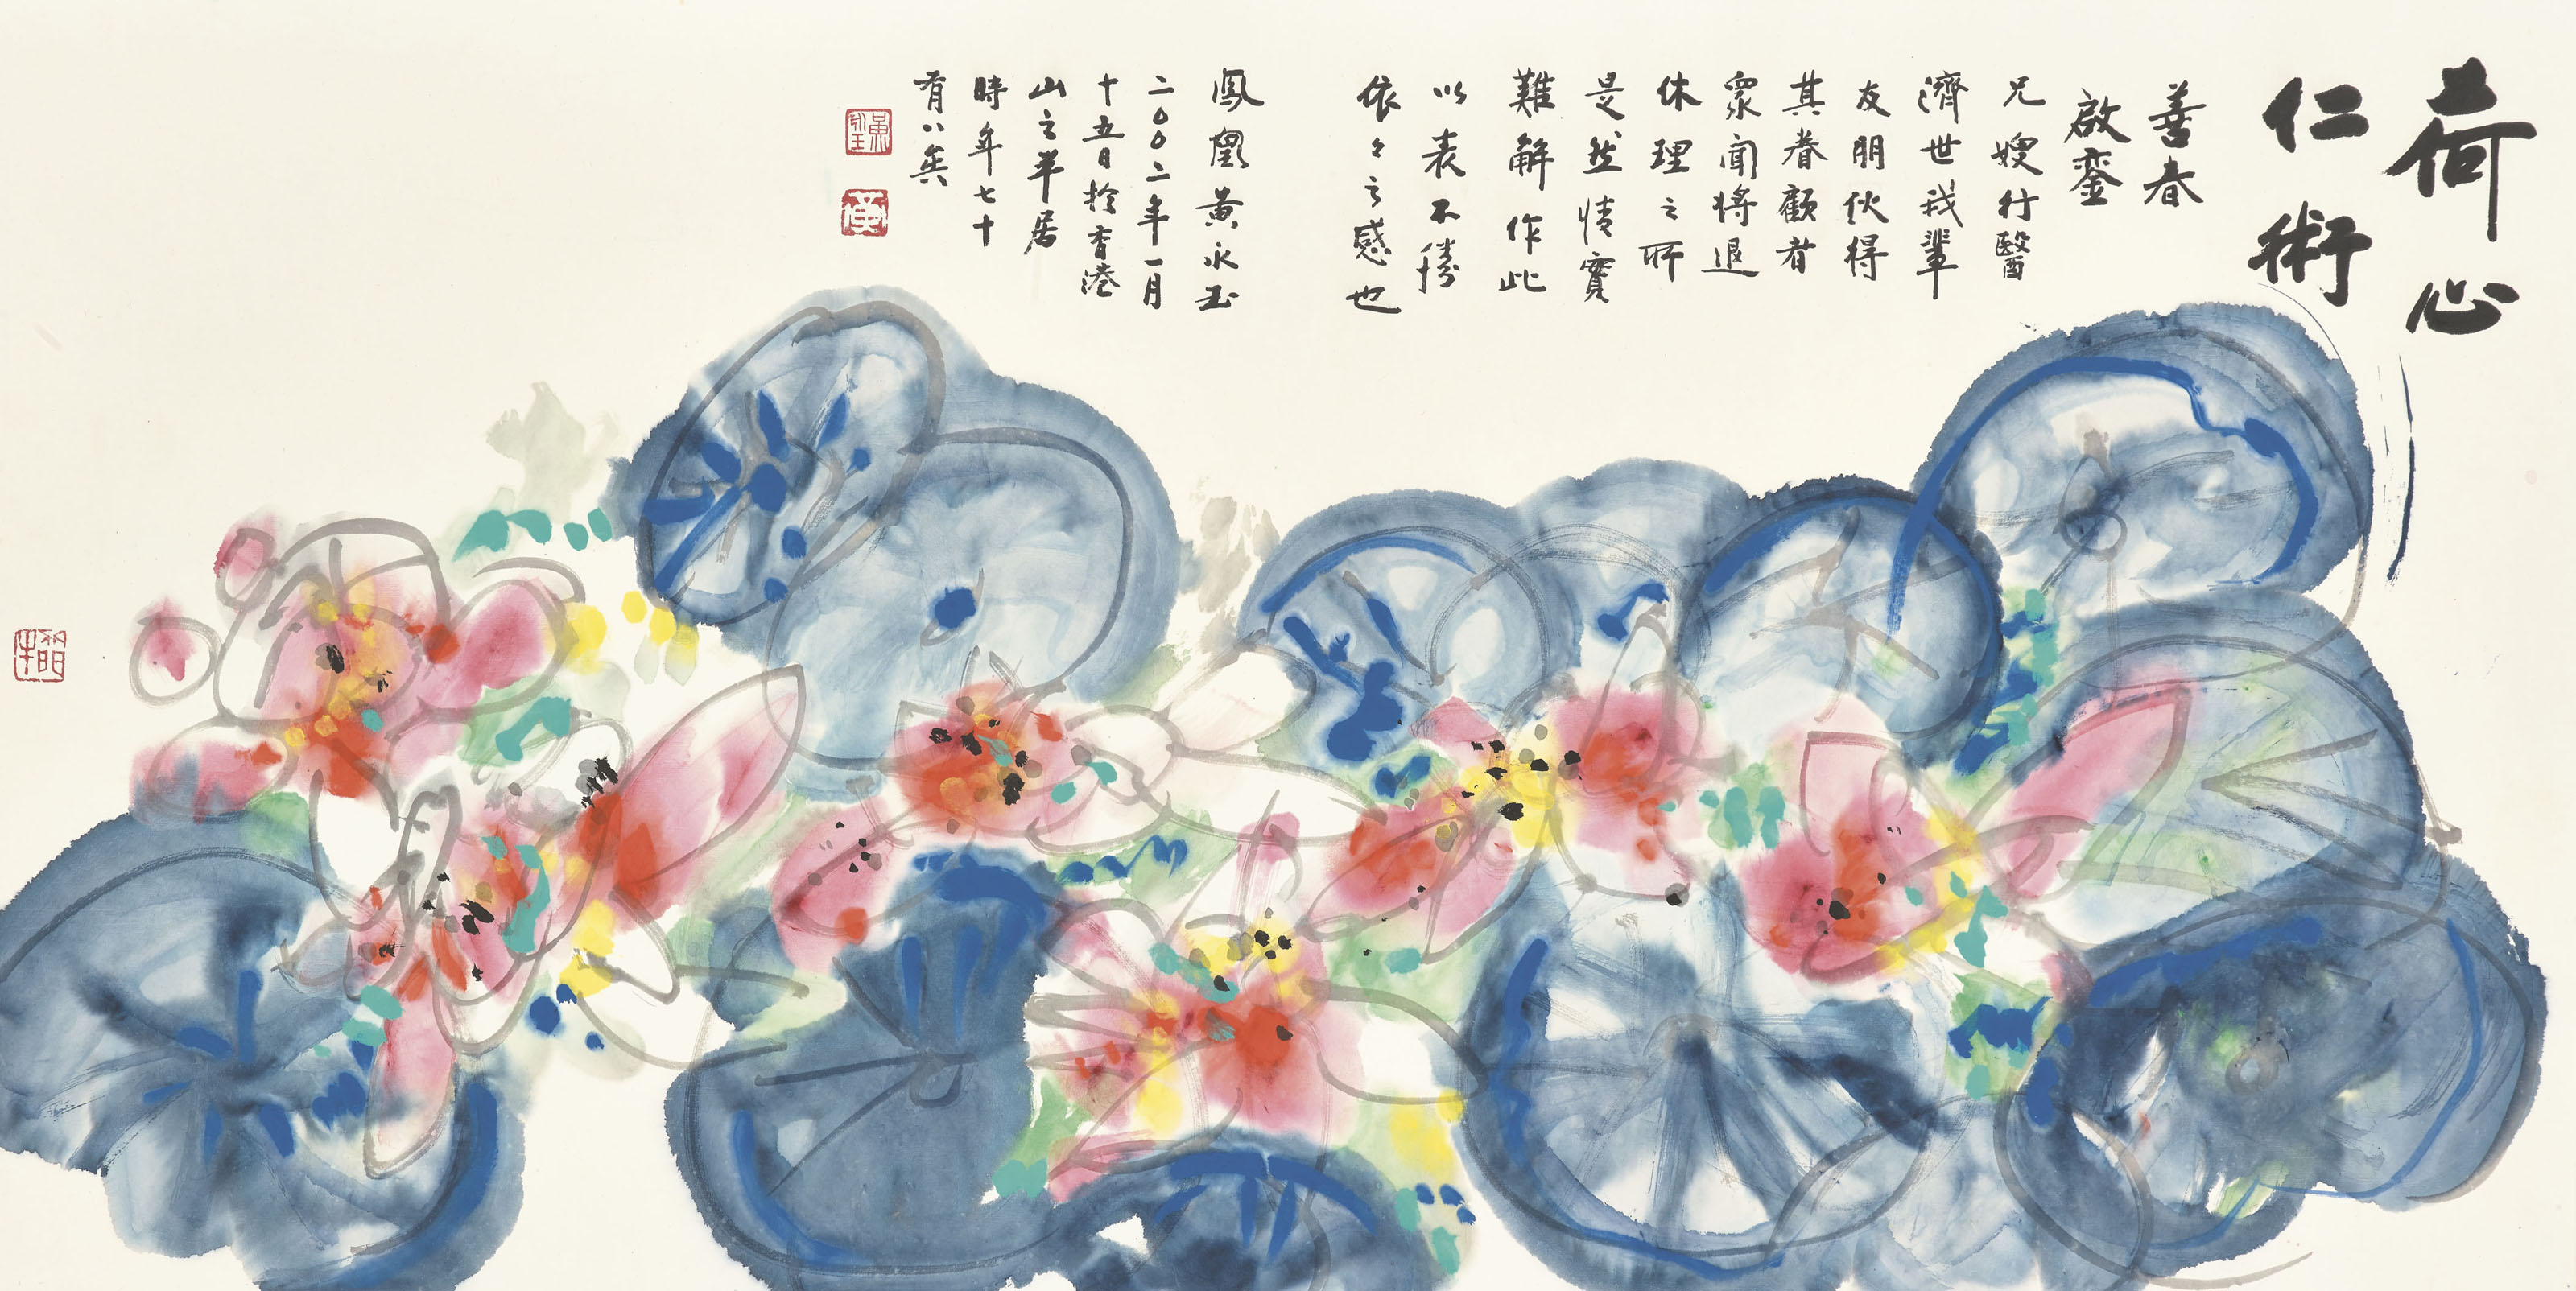 荷心
仁術
善春
啟鑾
兄嫂行醫
濟世我輩
友朋伙得
其眷顧者
衆聞將退
休理之所
是然情實
難解作此
以表不勝
依々之感也
鳳凰黃永玉
二〇〇二年一月
十五日於香港
山之半居
時年七十
有八矣
黃永玉
黃